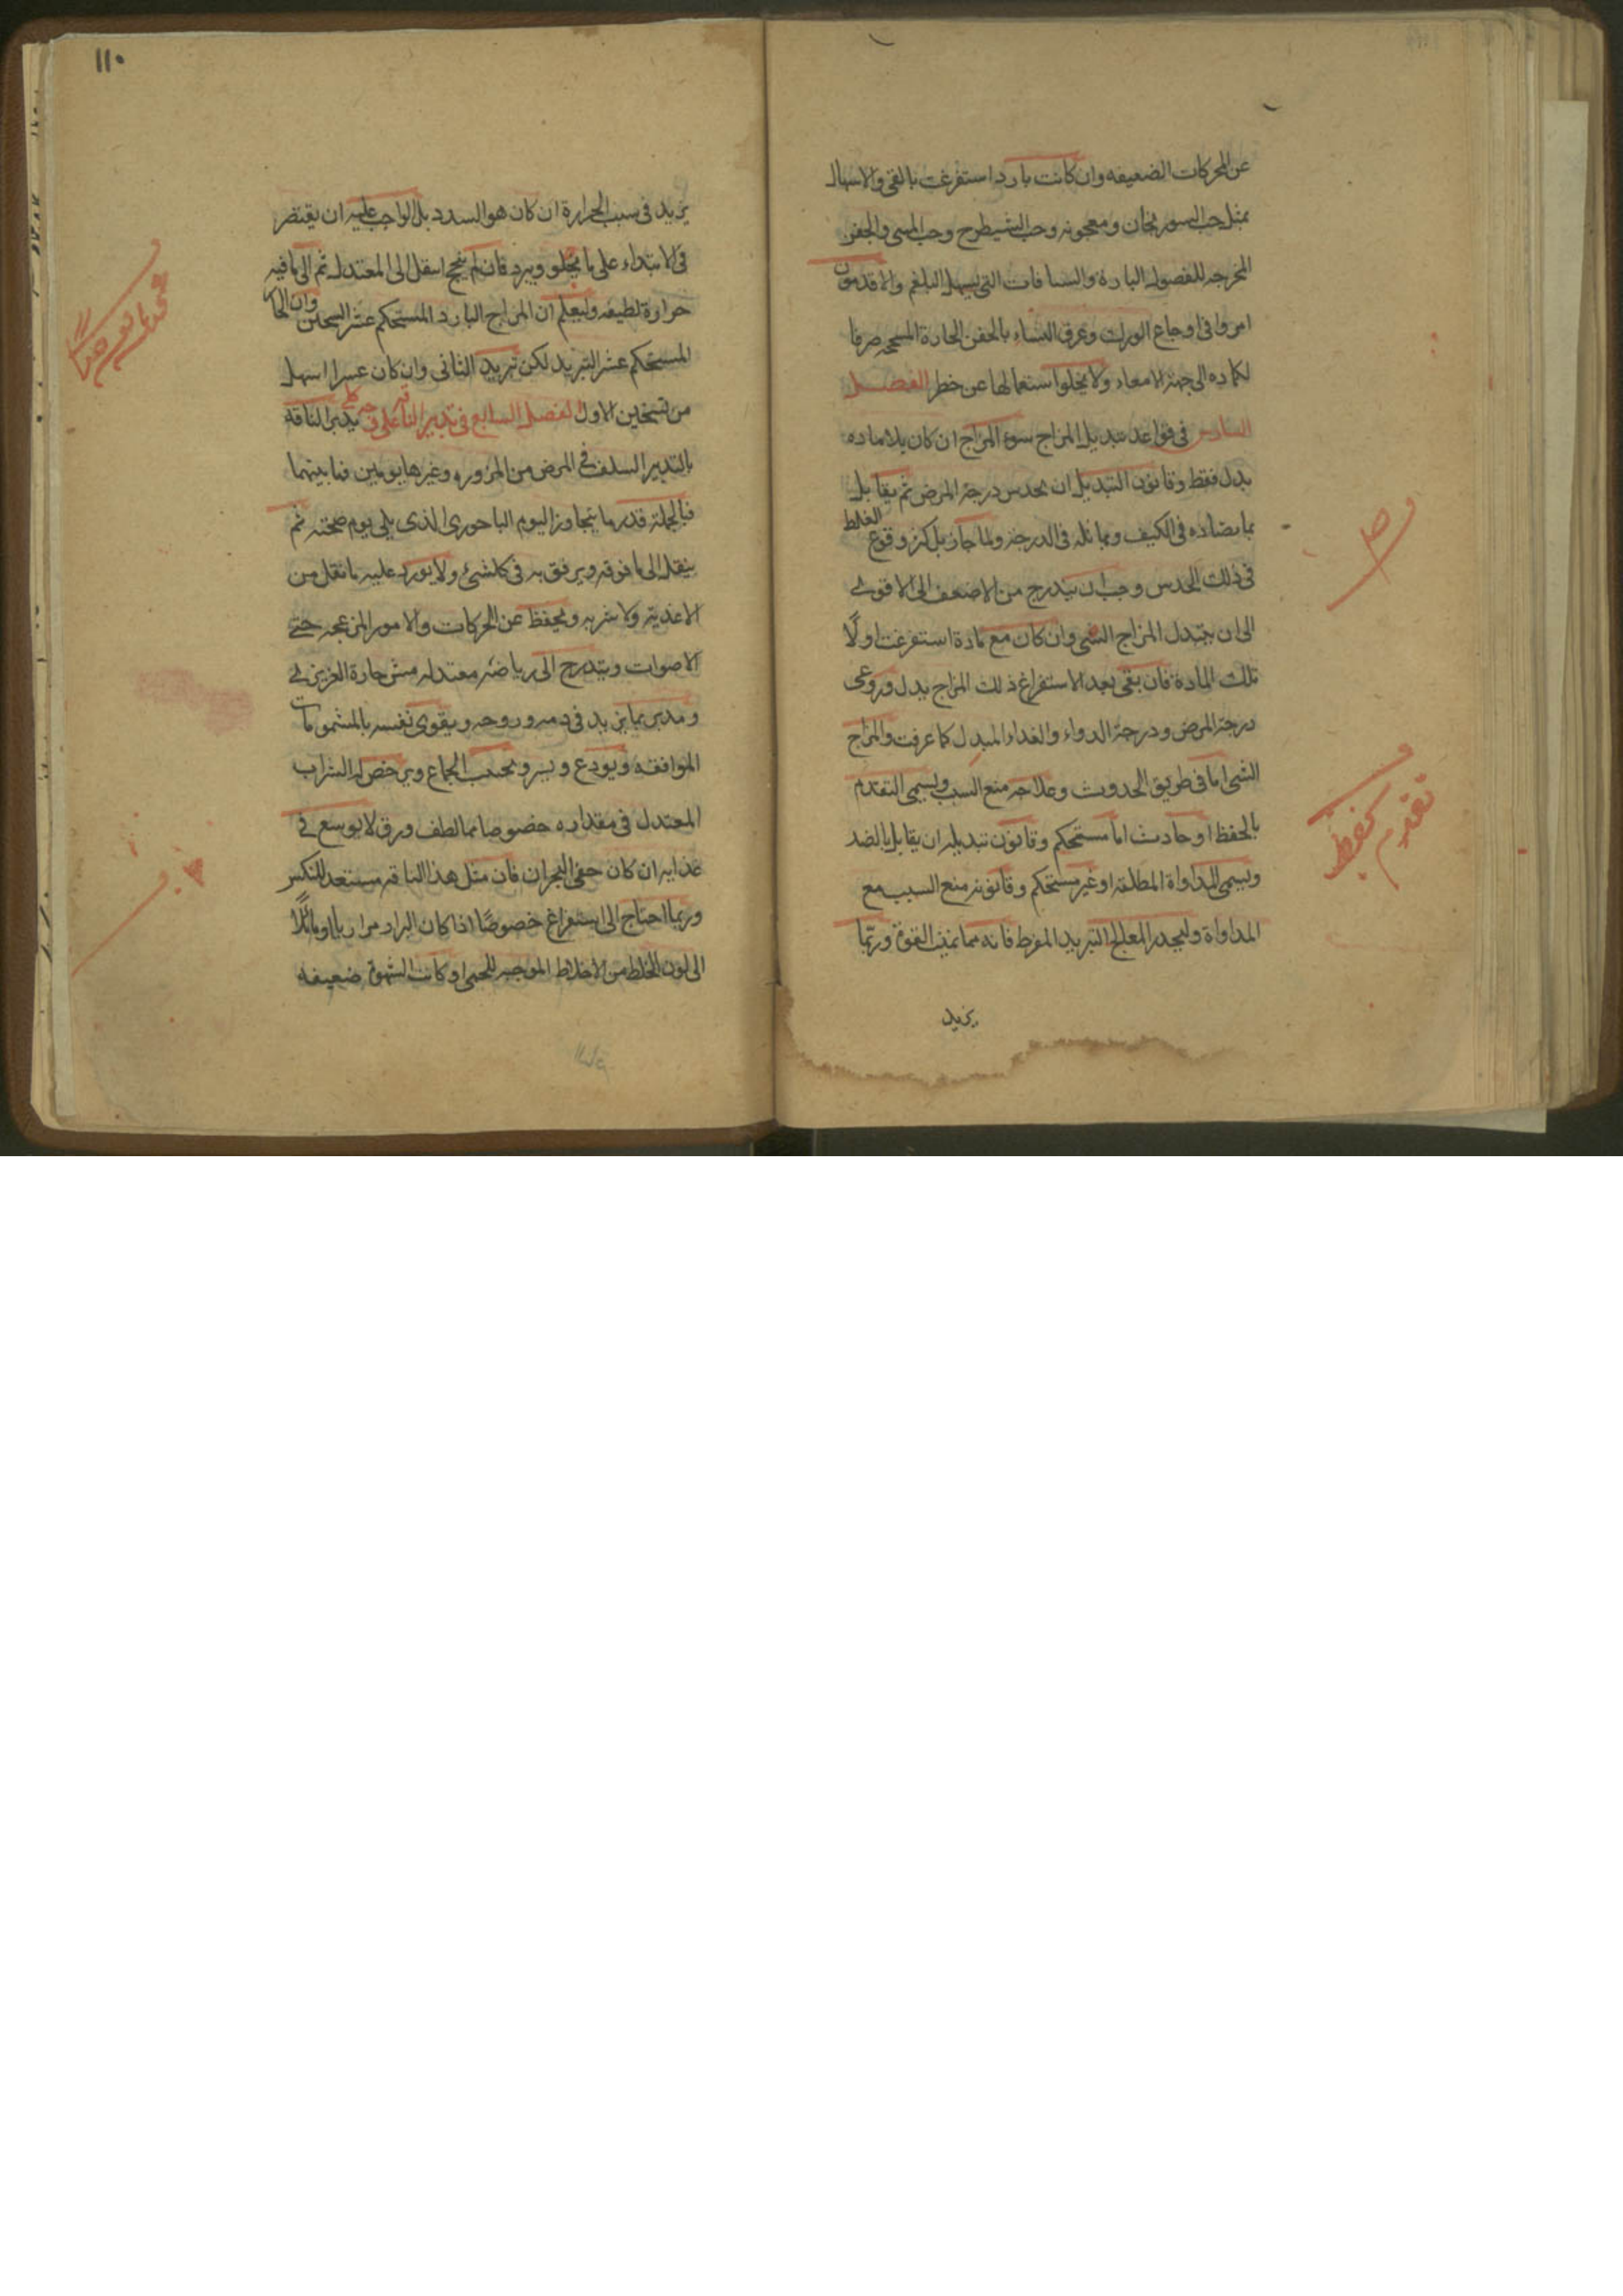 عن المحركات الضعيفه وان كانت بارد استفرغت بالقى والاسهال
بمثل حب السورنجان ومعجونه وحب الشيطرج وحب المنتن والحقن
المخرجه للفصول البارده والشيافات التى يسهل البلغم والاقدمون
امروا فى اوجاع الورك وعرق النساء بالحقن الحارة المسحجه صرفا
لكماده الى جهة الامعاء ولا يخلوا استعمالها عن خطر الفصل
السادس فى قواعد تبديل المزاج سوء المزاج ان كان بلا ماده
بدل فقط وقانون التبديل ان يحدس درجة المرض ثم يقابل
بما يضاده فى الكيف وبما ثله فى الدرجة ولما جاز بل كثر وقوع الغلط
فى ذلك الحدس وجب ان يتدرج من الاضعف الى الاقوى
الى ان يتبدل المزاج الشى وان كان مع مادة استفرغت اولًا
تلك المادة فان بقى بعد الاستفراغ ذلك المزاج بدل وروعى
درجة المرض ودرجة الدواء والغداء المبدل كما عرفت والمزاج
الشى اما فى طريق الحدوث وعلاجه منع السبب ويسمى التقدم
بالحفظ او حادث اما مستحكم وقانون تبديله ان يقابل بالضد
ويسمى المداواة المطلقه او غير مستحكم وقانونه منع السبب مع
المداواة وليحذر المعالج التبريد المفرط فانه مما يميت القوة وربما
يزيد
تقدم بحفظ
١١٠
يزيد فى سبب الحرارة ان كان هو السدد بل الواجب عليه ان يقتصر
فى الابتداء على ما يجلو ويبرد فان لم ينجح اسقل الى المعتدل ثم الى ما فيه
حرارة لطيفه وليعلم ان المزاج البارد المستحكم عسر التسخين وان الحا
المستحكم عسر التبريد لكن تبريد الثانى وان كان عسرا اسهل
من تسخين الاول الفصل السابع فى تدبير الناقه يدبر الناقه
بالتدبير السلف فى المرض من المزوره وغيرها يومين فما بينهما
فبالجملة قدر ما يتجاوز اليوم الباحورى الذى يلى يوم صحته ثم
ينقل الى ما فوقه ويرفق به فى كل شئ ولا يورد عليه ما ثقل من
الاغذية ولا شربه ويحفظ عن الحركات والامور المزعجه حتى
الاصوات ويتدرج الى رياضه معتدله حارة الغزيزى
ومدبر بما يزيد فى دمه وروحه ويقوى نفسه بالمشمومات
الموافقه ويودع ويسر ويجنب الجماع ويرخص له الشراب
المعتدل فى مقداره خصوصا مما لطف ورق لا يوسع فى
غذايه ان كان خفى البحران فان مثل هذا الناقه مستعد للنكس
وربما احتاج الى استفراغ خصوصًا اذا كان البراز مراريا او مائلًا
الى لون الخلط من الاخلاط الموجبه للحمى او كانت الشهوة ضعيفه